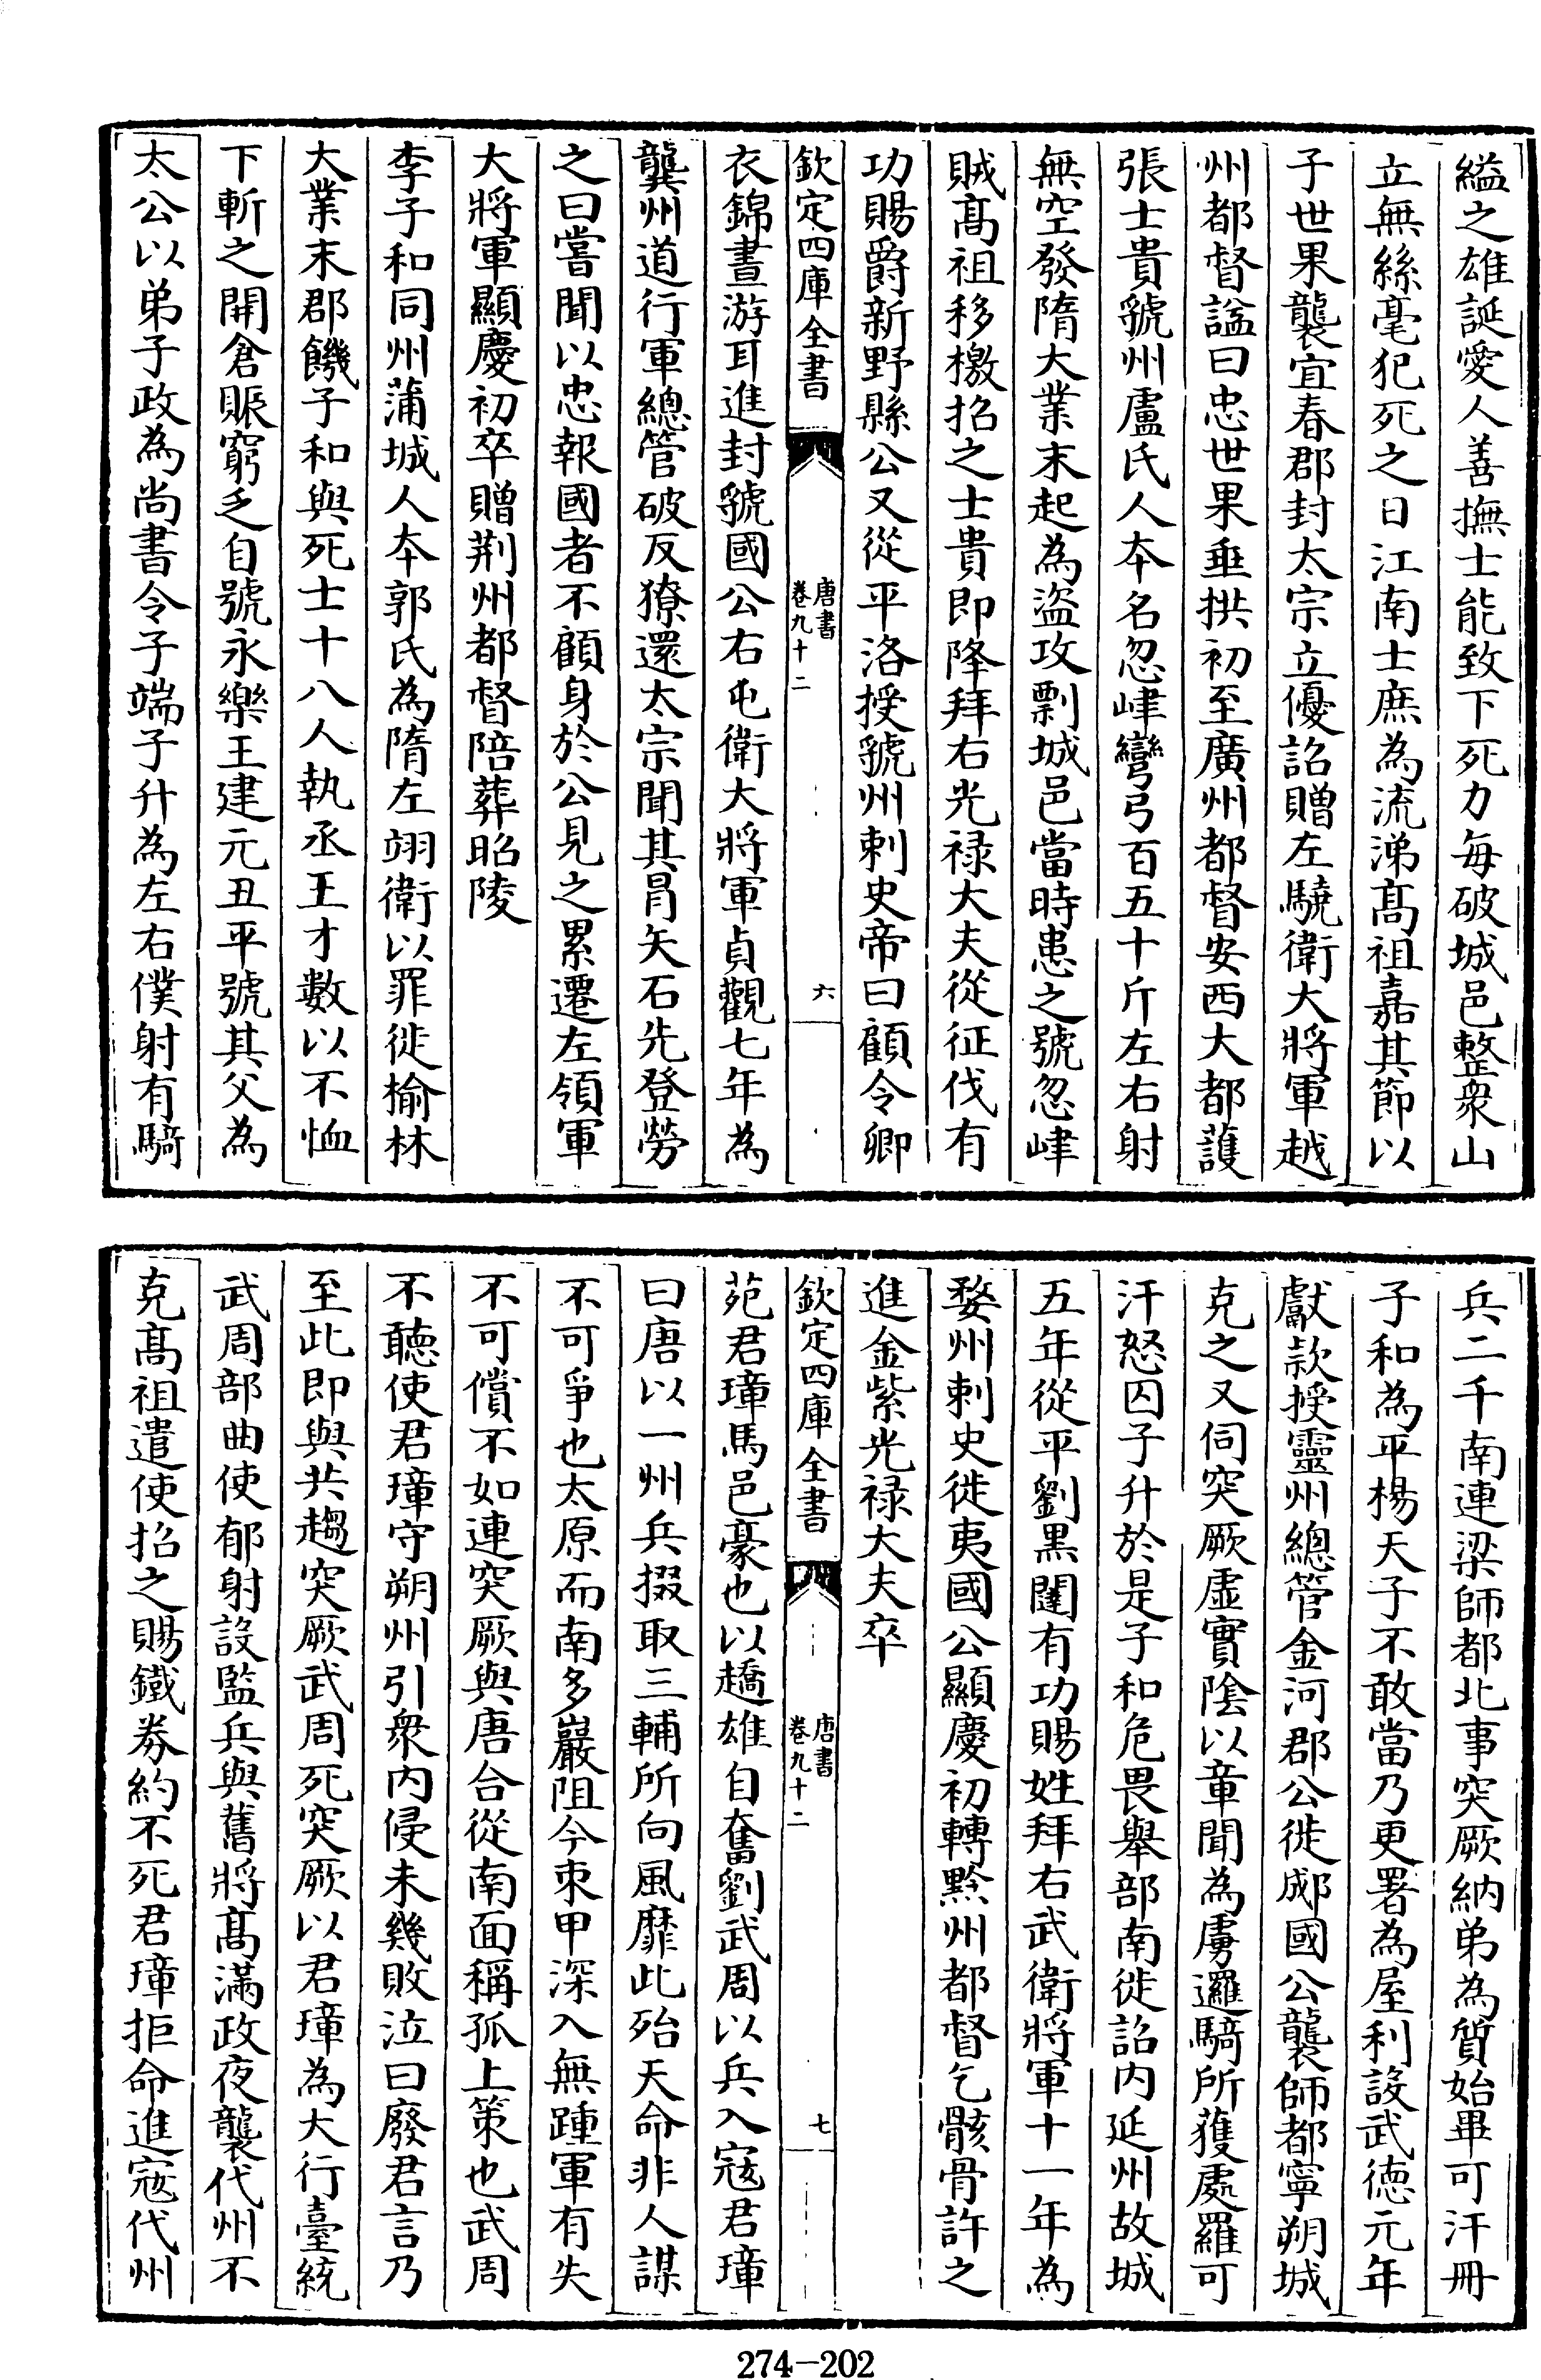 縊之雄誕愛人善撫士能致下死力每破城邑整衆山
立無絲毫犯死之日江南士庶為流涕髙祖嘉其節以
子世果襲宜春郡封太宗立優詔贈左驍衛大將軍越
州都督諡曰忠世果垂拱初至廣州都督安西大都䕶
張士貴虢州盧氏人本名忽峍彎弓百五十斤左右射
無空發隋大業末起為盜攻剽城邑當時患之號忽峍
賊髙祖移檄招之士貴即降拜右光禄大夫從征伐有
功賜爵新野縣公又從平洛授虢州刺史帝曰顧令卿
欽定四庫全書
唐書
卷九十二
六
衣錦晝游耳進封虢國公右屯衛大將軍貞觀七年為
龔州道行軍總管破反獠還太宗聞其冒矢石先登勞
之曰嘗聞以忠報國者不顧身於公見之累遷左領軍
大將軍顯慶初卒贈荆州都督陪葬昭陵
李子和同州蒲城人本郭氏為隋左翊衛以罪徙榆林
大業末郡饑子和與死士十八人執丞王才數以不恤
下斬之開倉賑窮乏自號永樂王建元丑平號其父為
太公以弟子政為尚書令子端子升為左右僕射有騎
兵二千南連梁師都北事突厥納弟為質始畢可汗冊
子和為平楊天子不敢當乃更署為屋利設武徳元年
獻款授靈州總管金河郡公徙郕國公襲師都寧朔城
克之又伺突厥虚實隂以章聞為虜邏騎所獲處羅可
汗怒囚子升於是子和危畏舉部南徙詔内延州故城
五年從平劉黒闥有功賜姓拜右武衛將軍十一年為
婺州刺史徙夷國公顯慶初轉黔州都督乞骸骨許之
進金紫光禄大夫卒
欽定四庫全書
唐書
卷九十二
七
苑君璋馬邑豪也以趫雄自奮劉武周以兵入寇君璋
曰唐以一州兵掇取三輔所向風靡此殆天命非人謀
不可爭也太原而南多巖阻今束甲深入無踵軍有失
不可償不如連突厥與唐合從南面稱孤上策也武周
不聽使君璋守朔州引衆内侵未幾敗泣曰廢君言乃
至此即與共趨突厥武周死突厥以君璋為大行臺統
武周部曲使郁射設監兵與舊將髙滿政夜襲代州不
克髙祖遣使招之賜鐵劵約不死君璋拒命進寇代州
274-202